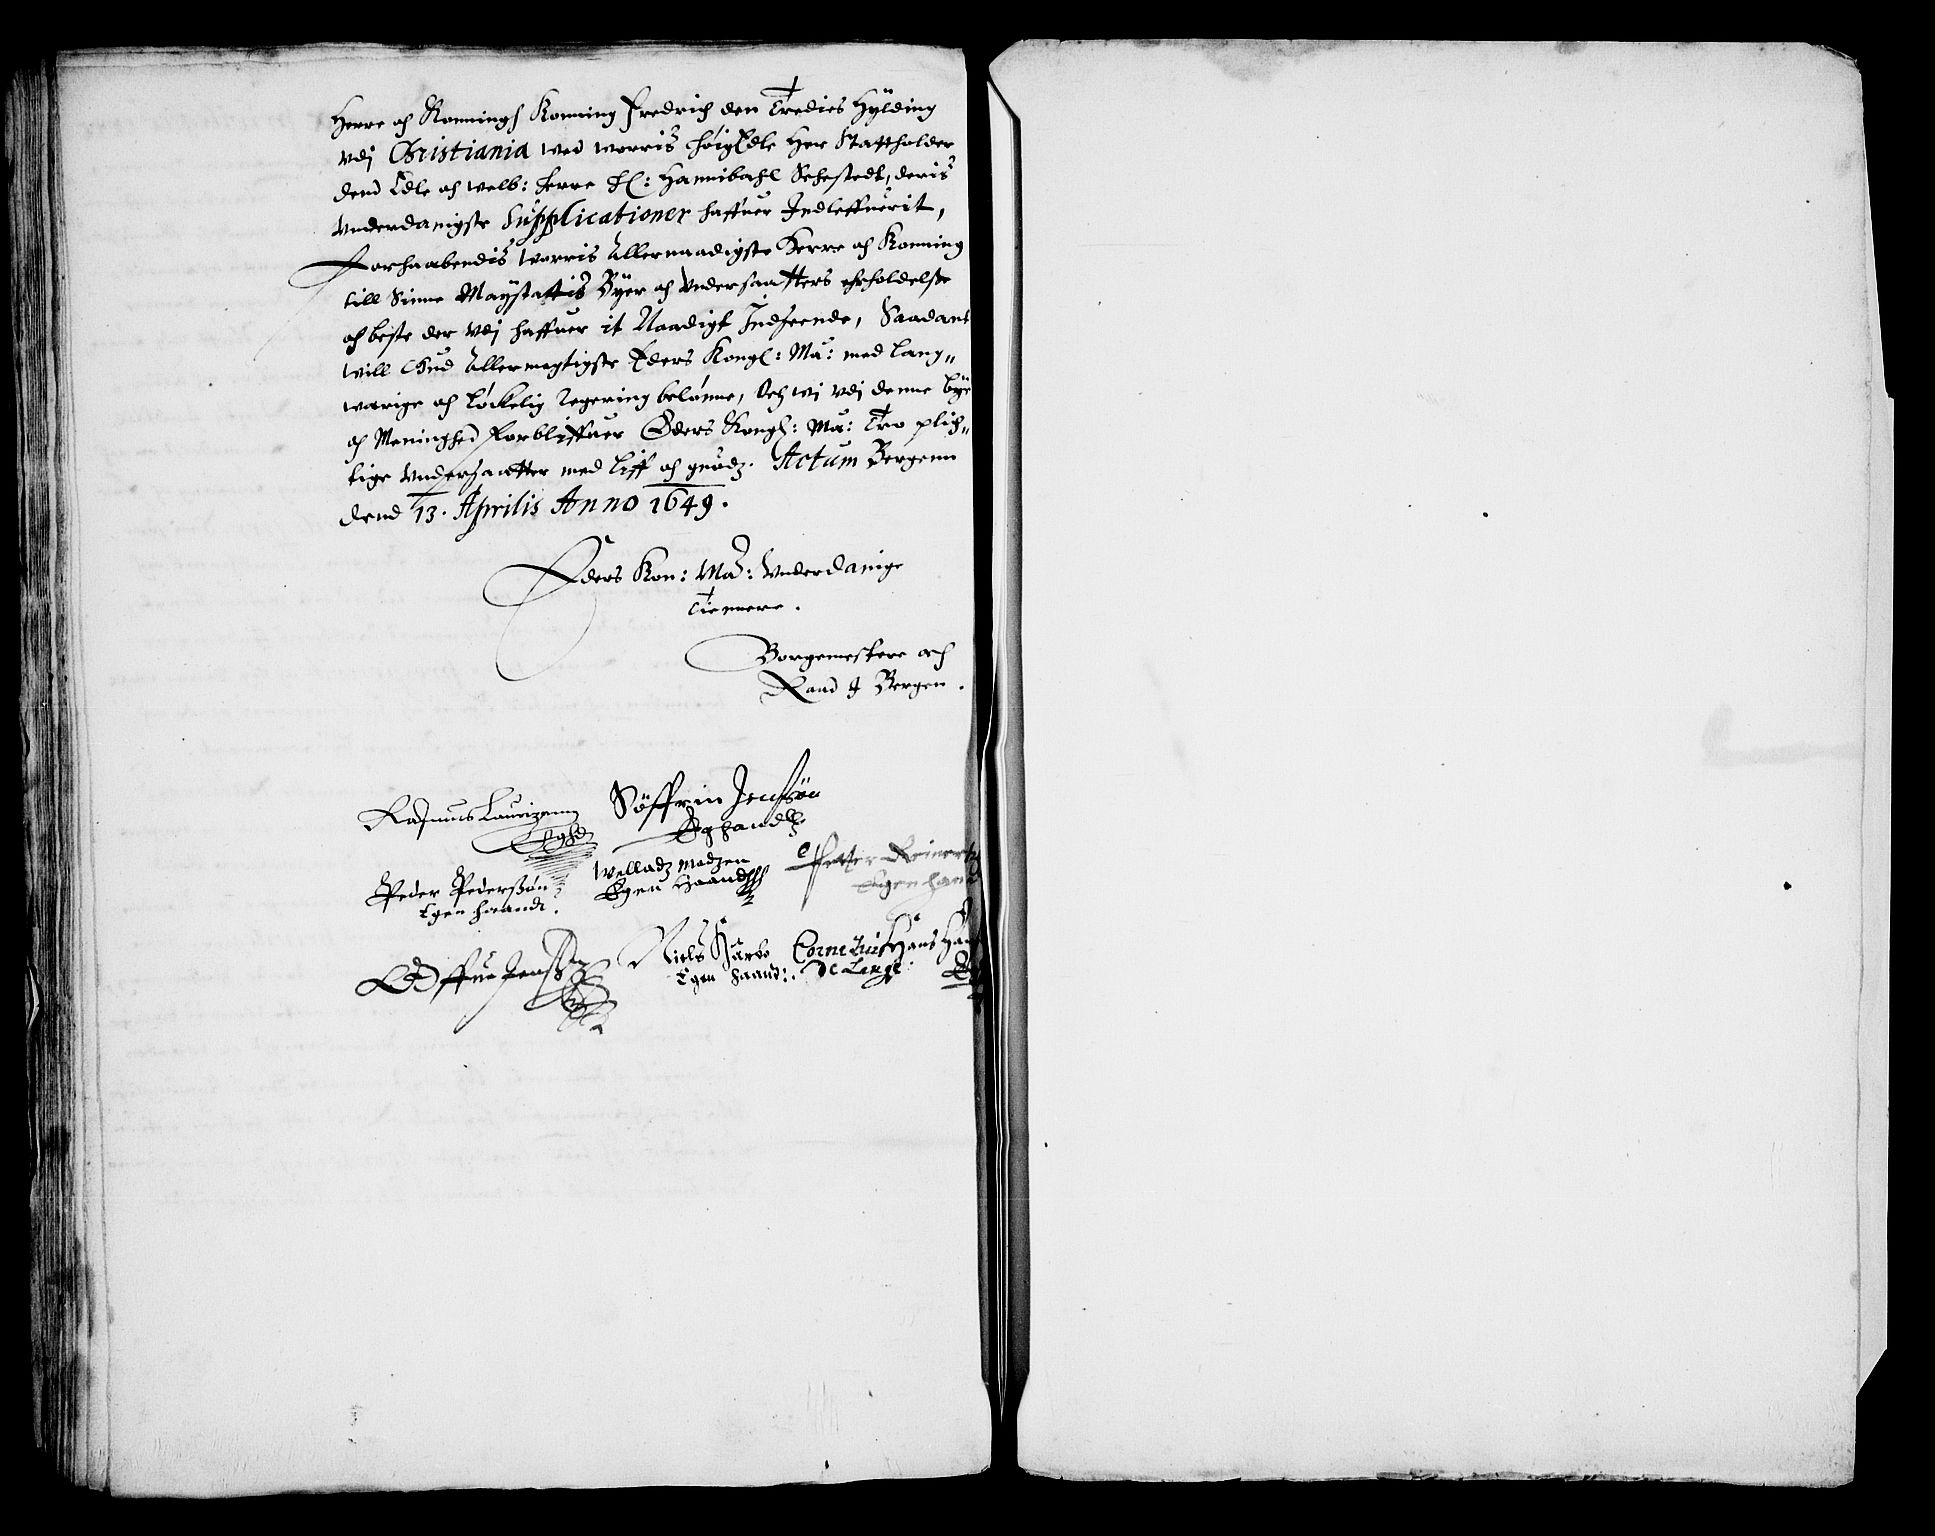 Herre och Konningh Konning Fredrich den Tredies Hylding
vdj Christiania wed worris höig Edle Her Statholder
dend Edle och welb: herre H: Hannibahl Sehestedt, deris
Vnderdanigste Supplicationer haffuer Indleffuerit,
Forhaabendis worris Allernaadigste Herre och Konning
till Sinne Maÿstattis Byer och Vndersaatters erholdelse
och beste der vdj haffuer it Naadigt Indseende, Saadant
will Gud Allermegtigste Eders Kongl: Ma: med lang„
warige och lÿckelig regering belönne, Och wi vdj denne bye
och Meninghed forbliffuer Eders Kongl: Ma: Tro plich„
tige Vndersaatter med liff och guodz. Actum Bergenn
dend 13. Aprilis Anno 1649.
Eders Kon: Ma: Vnderdanige
Tiennere.
Borgemestere och
Raad I Bergen.
Rasmus Lauritzenn Söffrin Jenssön
Eghd Eghandt
Peder Pederssön Welladz Madzen Petter Reinertz
Egen haandt. Egen Haand Egen hand
Oluffue Jenssen Niels Harbo Cornelius Hans Han
Egen haand: de Lange